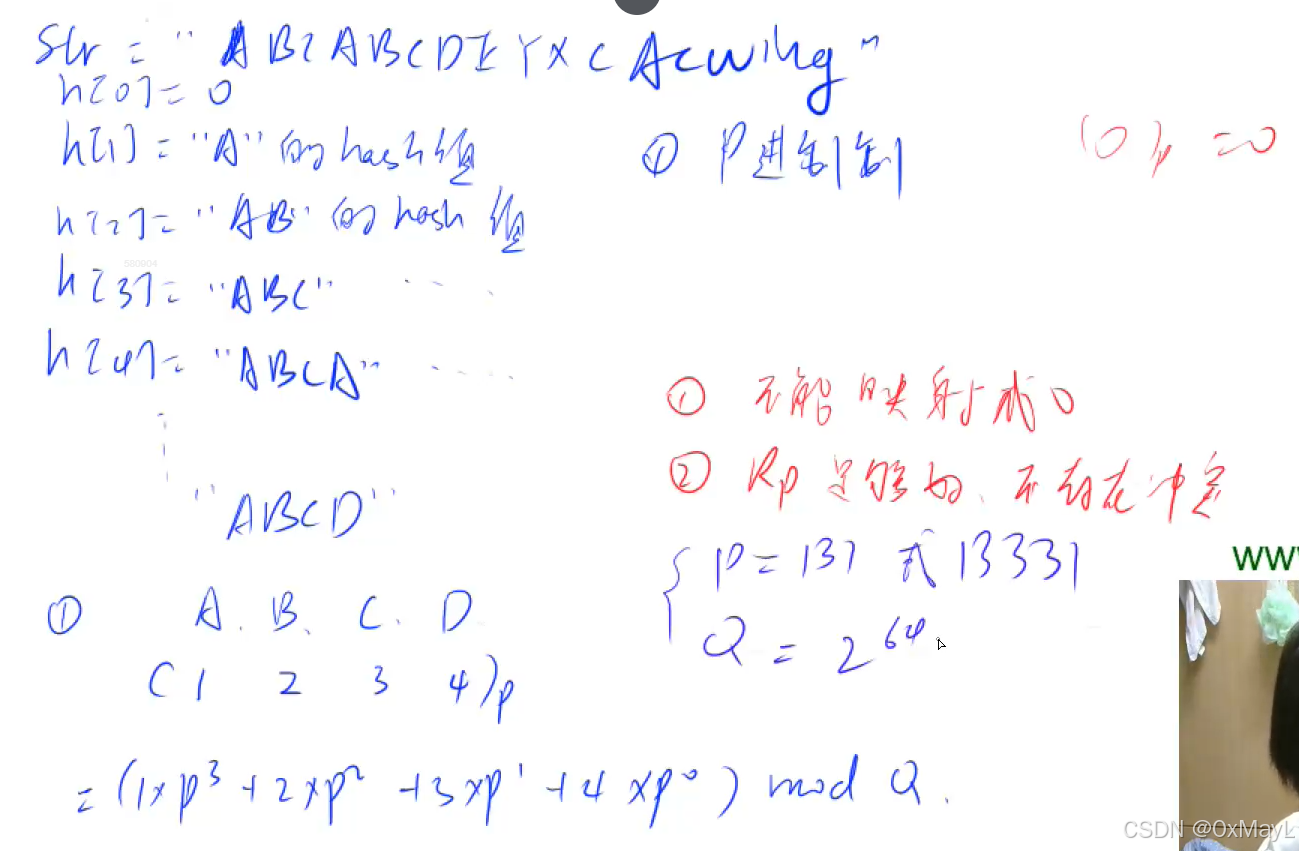 str = "ABCABCDEYXCAcwing"
h[0] = 0
h[1] = "A" 的 hash 值
① P进制制
(0)p = 0
h[2] = "AB" 的 hash 值
500904
h[3] = "ABC" ....
h[4] = "ABCA" ....
① 不能映射成0
② Rp足够好、不存在冲突
"ABCD"
P = 131 或 13331
Q = 2^64
WW
① A. B. C. D
(1 2 3 4)p
= (1×p^3 + 2×p^2 + 3×p^1 + 4×p^0) mod Q.
CSDN @0xMayL